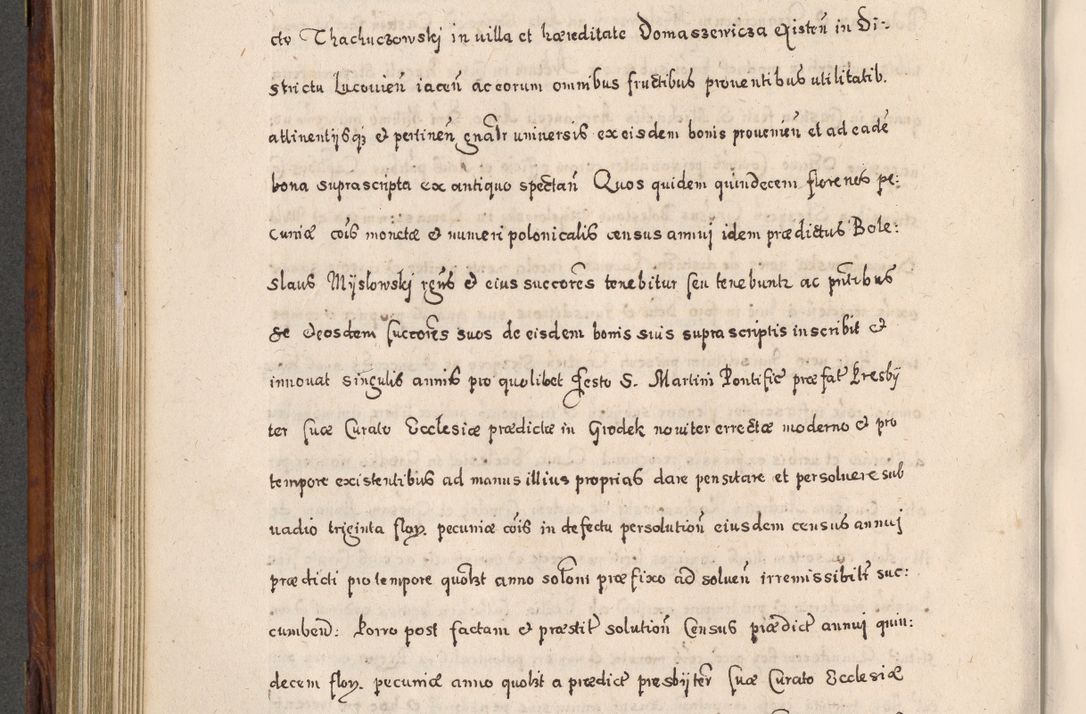 cto Thachuczowski in uilla et hæreditate Domaszewicza Existen̄ in Di-
strictu Lucouien̄ iacen̄ ac eorum omnibus fructibus prouentibus utilitatib.
attinentijsq; & pertinen̄ gn̄aĺr uniuersis ex eisdem bonis prouenien̄ et ad eadē
bona suprascripta ex antiquo spectan̄ Quos quidem quindecem florenos pe:
cuniæ cōis monetæ & numeri polonicalis census annuj idem prædictus Bole:
slaus Myslowskj ... & eius succores̄ tenebitur seu tenebuntr ac ...
se & eosdem succores̄ suos de eisdem bonis suis supra scriptis inscribit &
innouat singulis annis pro quolibet festo S. Martini Pontific̄ præfat̄ Presby
ter suæ Curato Ecclesiæ prædictæ in Grodek nouiter errectæ moderno & pro
tempore existentibus ad manus illius proprias dare pensitare et persoluere sub
uadio triginta flor. pecuniæ cōis in defectu persolution̄ eiusdem census annuj
prædicti pro tempore quolzt anno solōni præfixo ad soluen̄ irremissibilr̄ suc:
cumben̄: Porro post factam & præstit̄ solution̄ Census prædict̄ annuj quin:
decem flor. pecuniæ anno quolzt a prædict̄ presbyter̄ suæ Curato Ecclesiæ